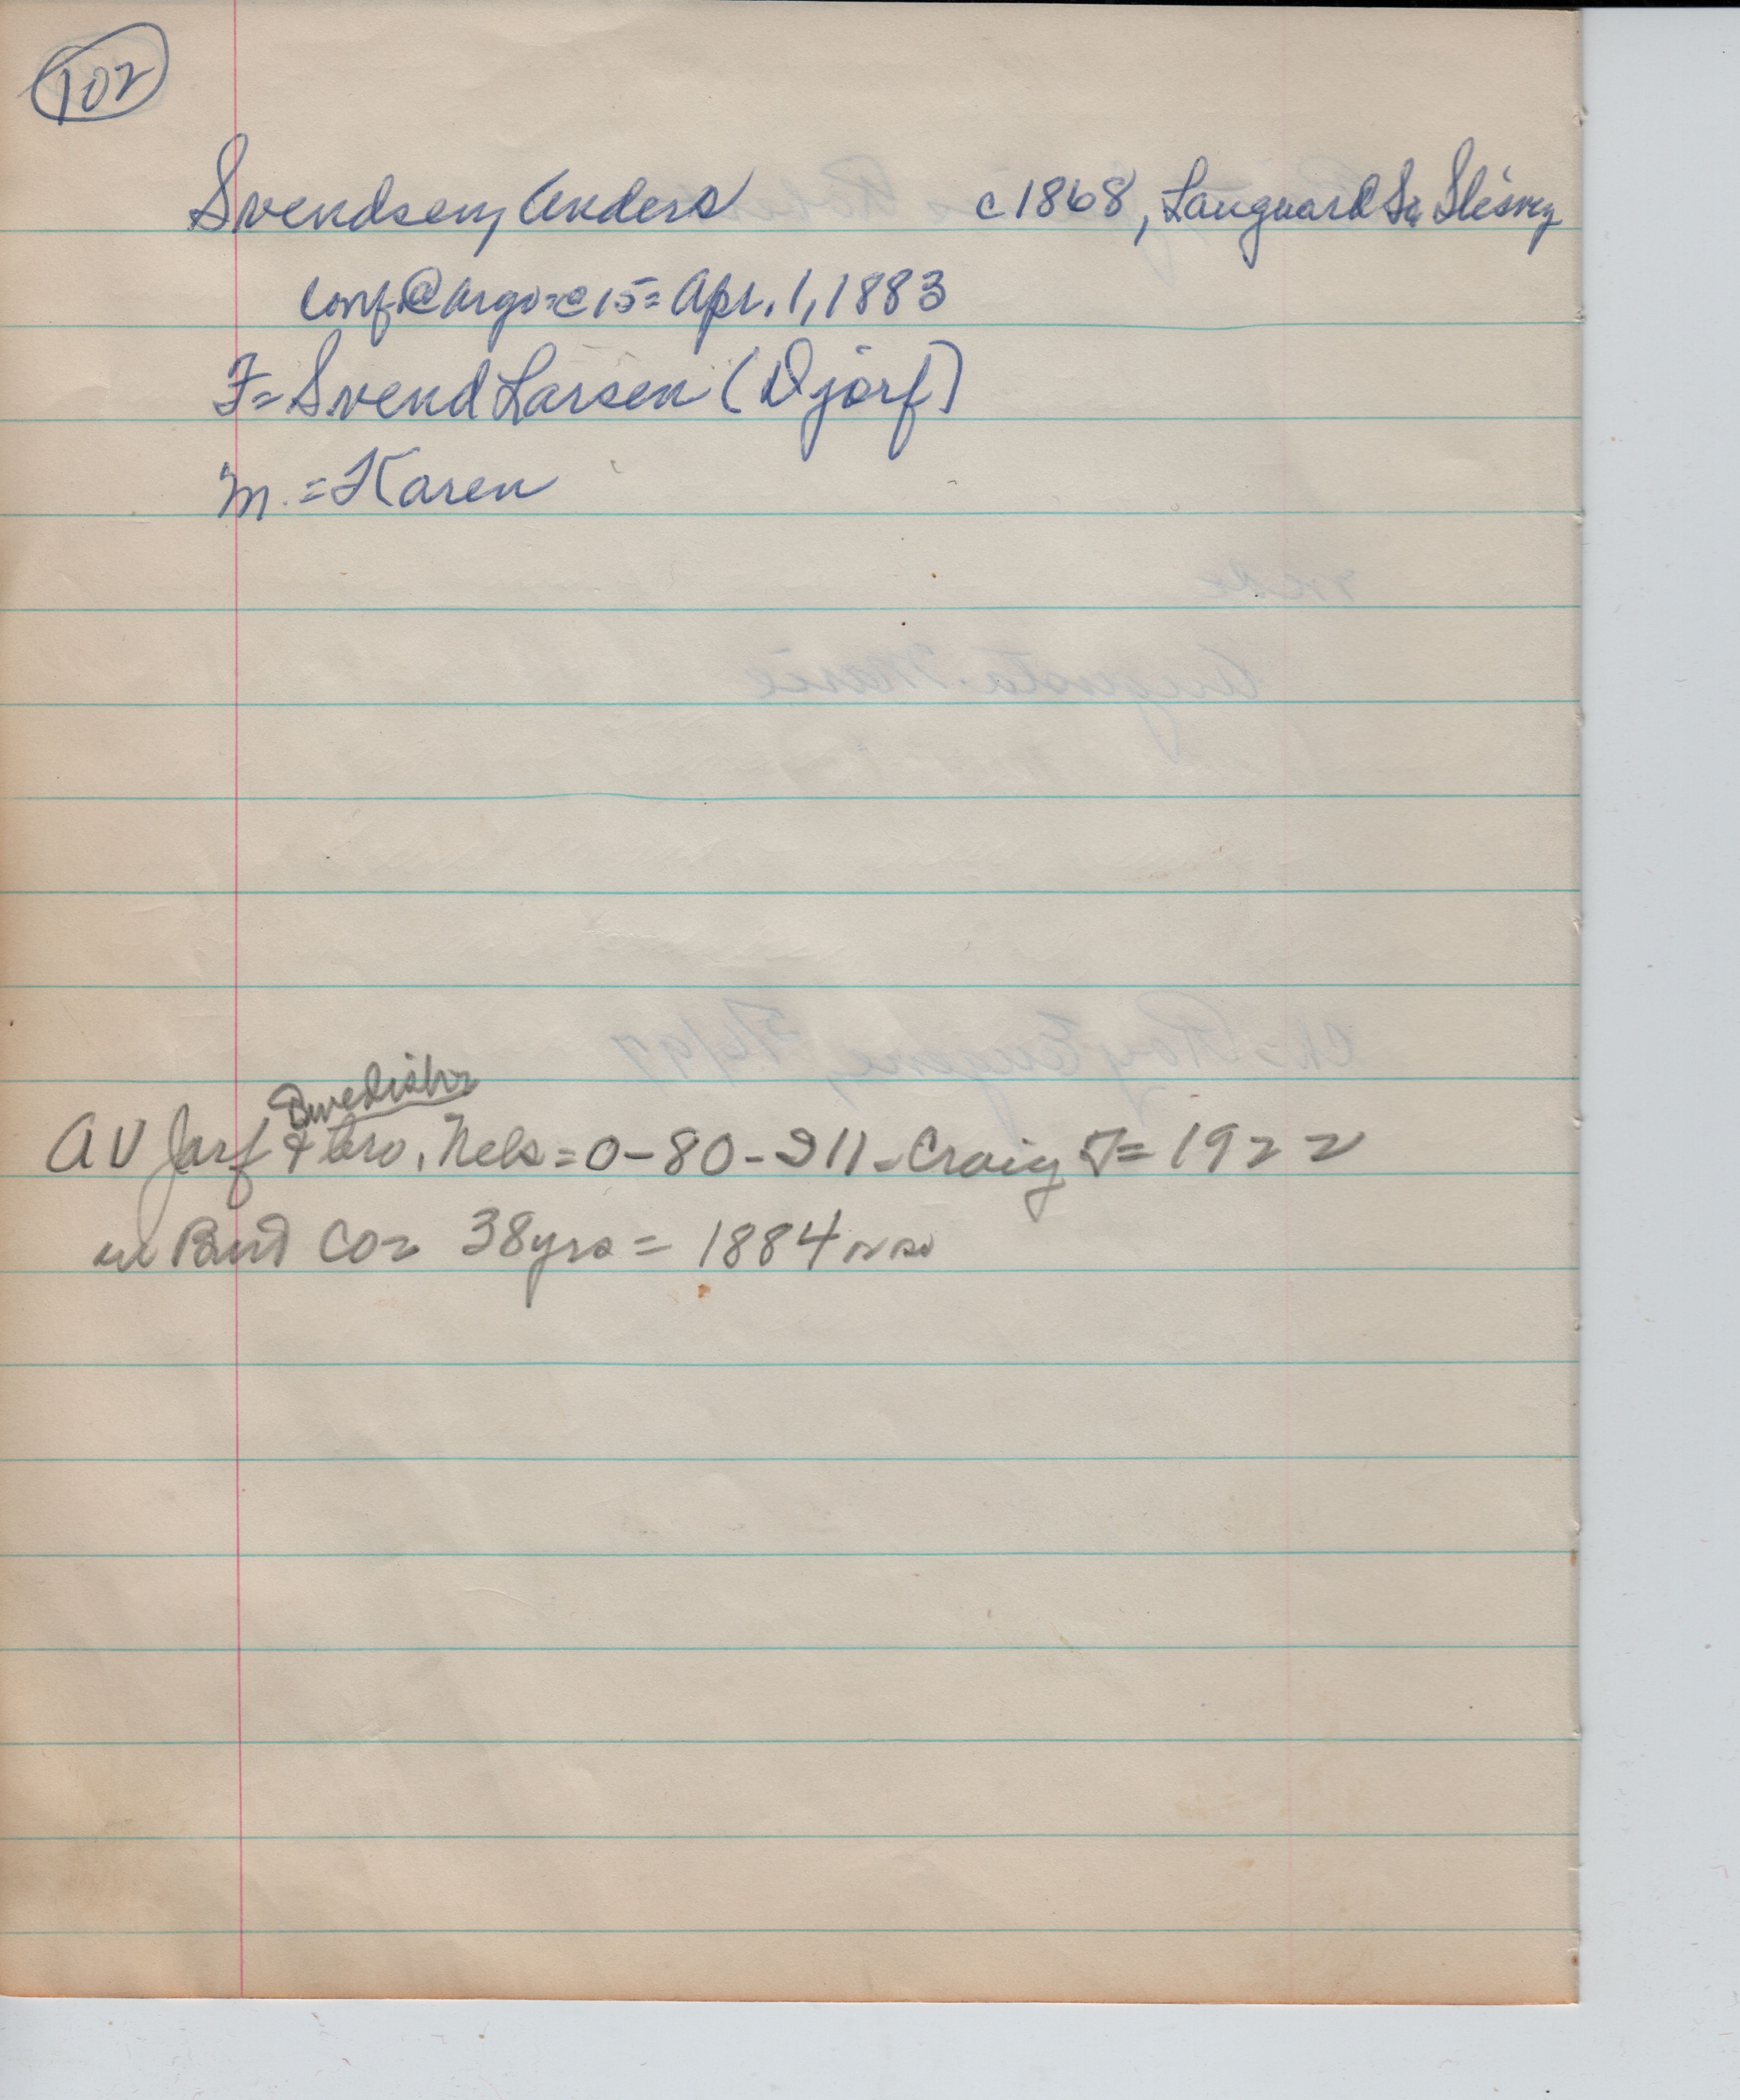 102
Svendsen, Anders c1868, Languard So Slesvig
conf. @ Argo = @ 15 = Apr. 1, 1883
F = Svend Larsen (Djörf)
M. = Karen
Swedish =
A V Jarf & bro. Nels = 0-80-211- Craig T = 1922
in Burt Co = 38 yrs = 1884